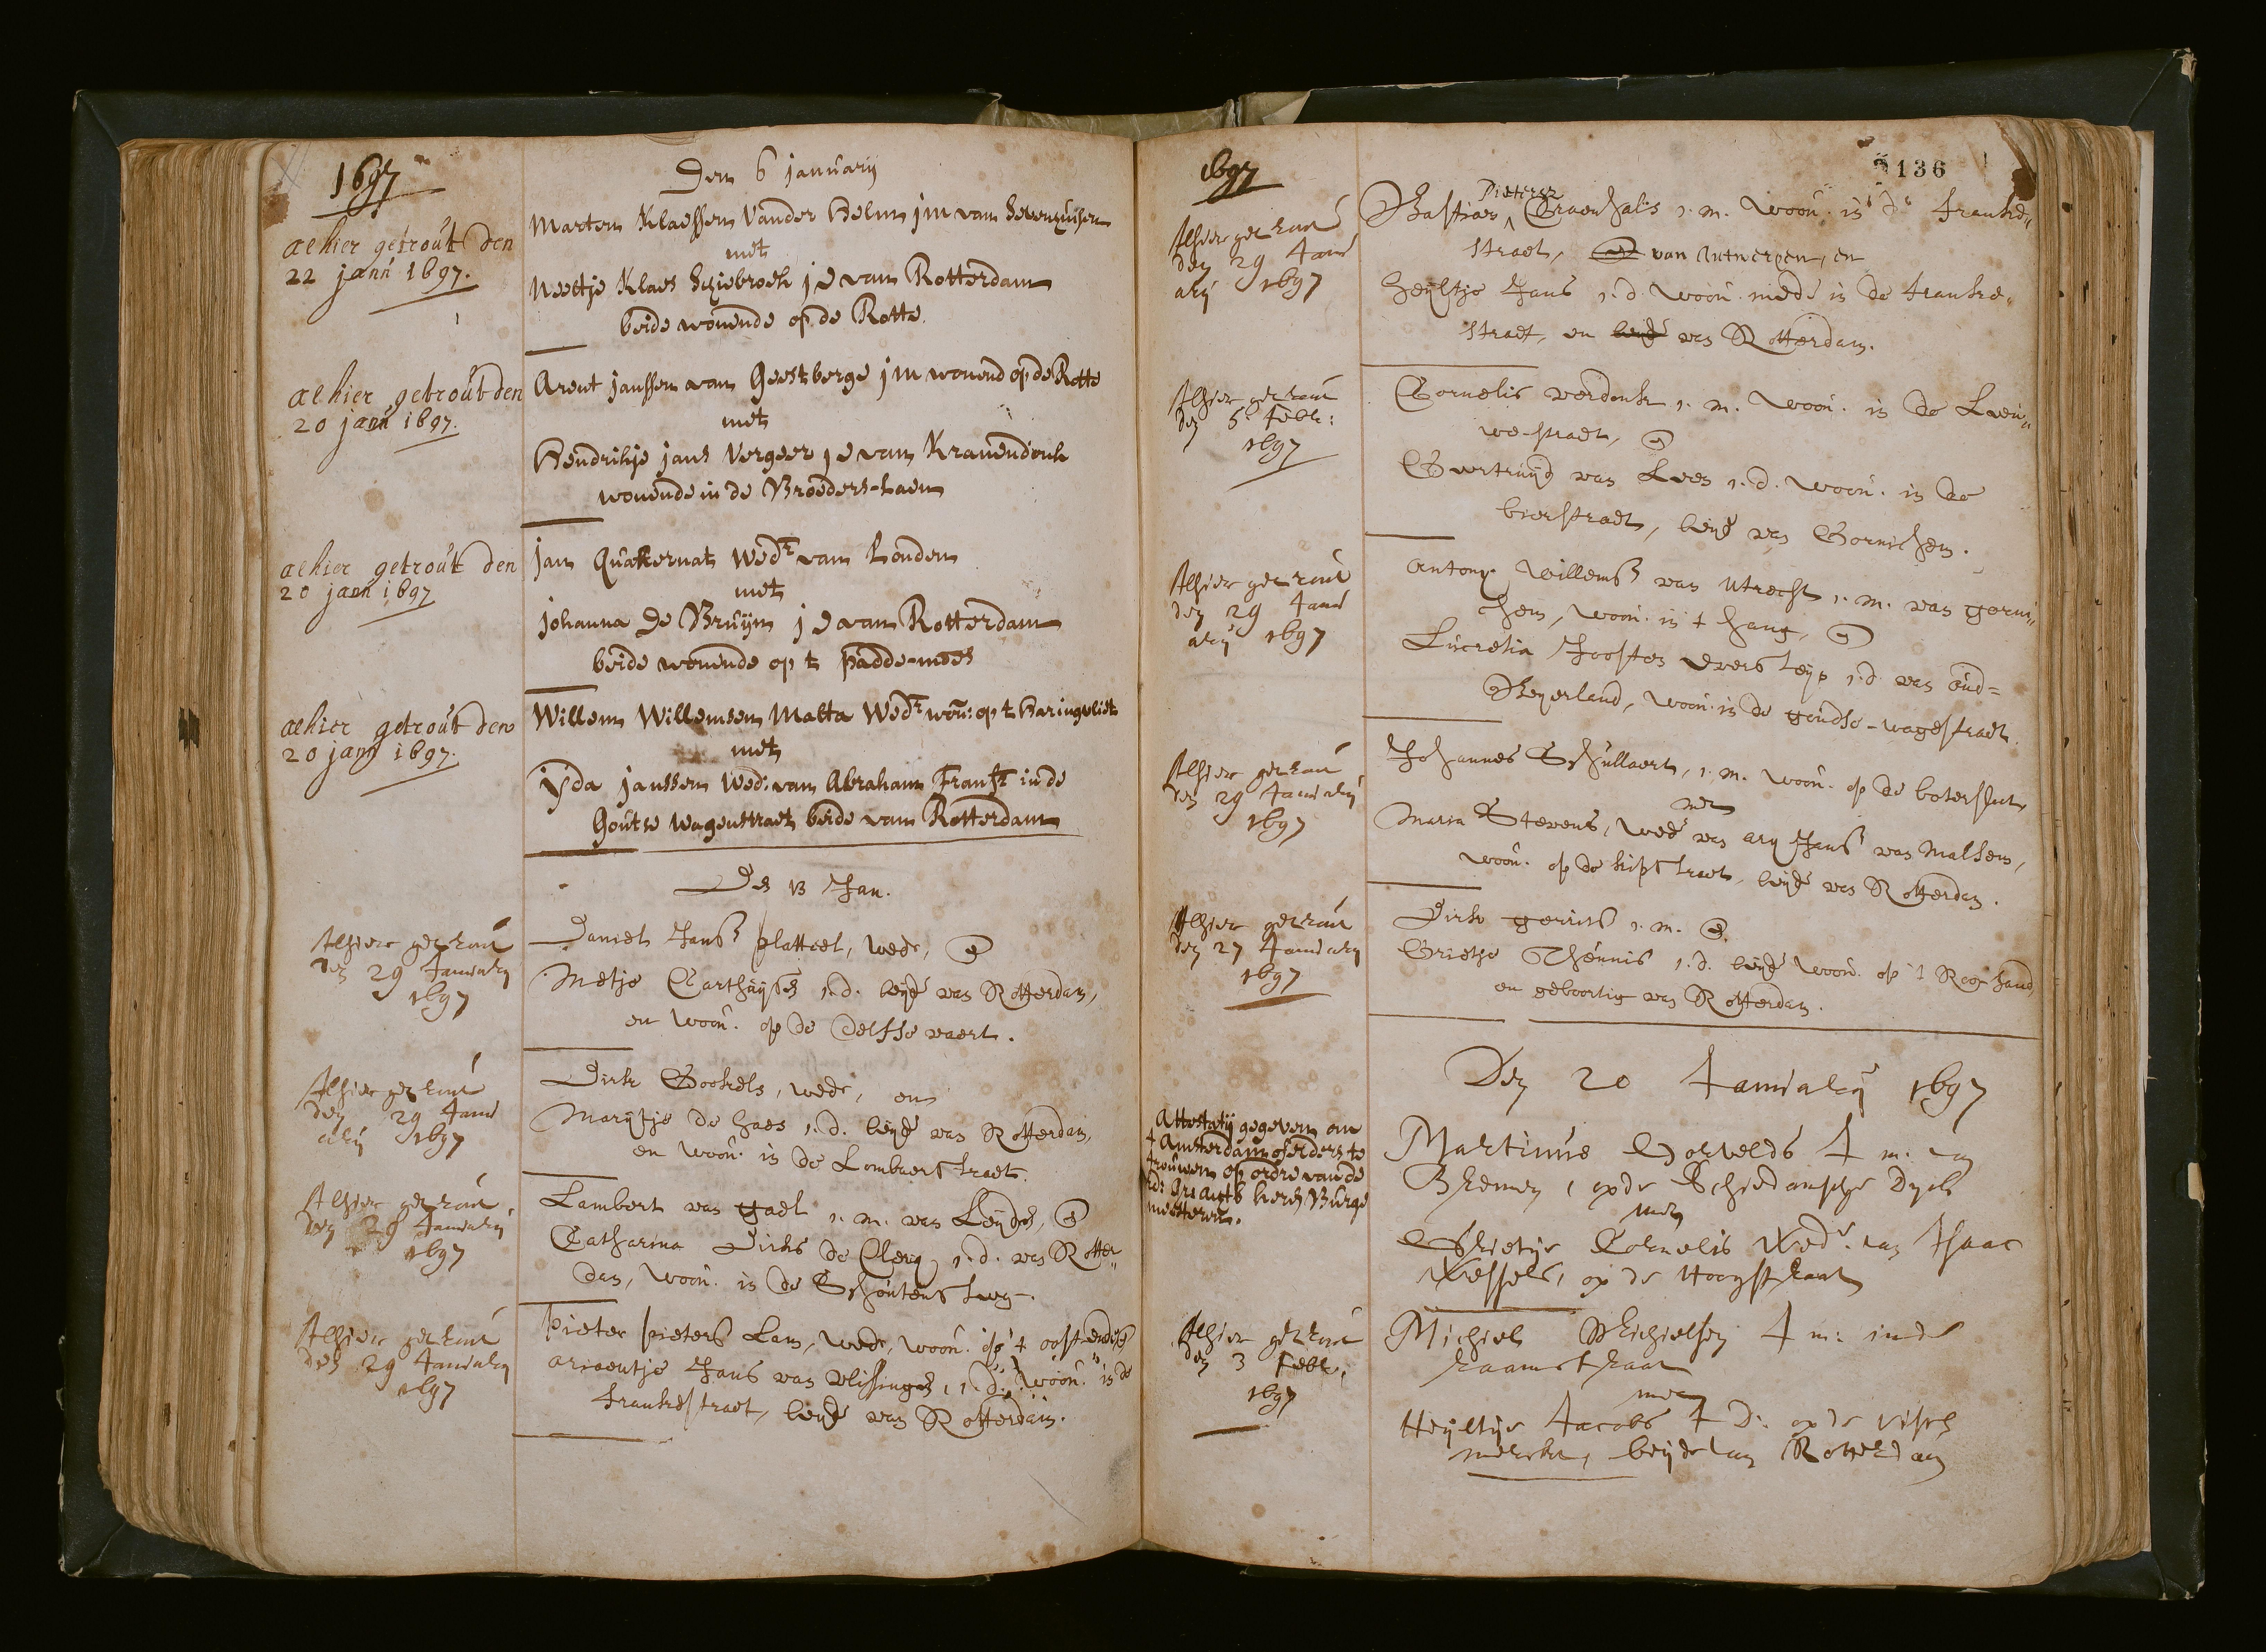 1697
Den 6 januarij
aelhier getrout den
22 jann 1697.
Marten Klaessen Vander Helm jm van Sevenhuisen
met
Neeltje Klaes Schiebroek jd van Rotterdam
beide wonende op de Rotte
aelhier getrout den
20 jann 1697.
Arent janssen van Geestberge jm wonend op de Rotte
met
Hendrikje jans Vergeer jd van Krauendonk
wonende in de Broeders-Laen
aelhier getrout den
20 jann 1697
jan Quakernat Wedr van Londen
met
johanna de Bruijn jd van Rotterdam
beide wonende op t padde-moes
aelhier getrout den
20 jann 1697.
Willem Willemsen Matta Wedr won: op t Haringvliet
met
ijda janssen Wed: van Abraham Fransz in de
Goutse Wagenstraet beide van Rotterdam
Den 13 Jan.
Alhier getrout
den 29 Januarij
1697
Daniel Jansz platteel, wedr, en
Metje Carthuijsen j.d. beijde van Rotterdam,
en woon. op de delfse vaert.
Alhier getrout
den 29 Janu
arij 1697
Dirk Gookels, wedr, en
Marijtje de haes j.d. beijde van Rotterdam,
en woon. in de Lombaertstraet.
Alhier getrout
den 29 Januarij
1697
Lambert van gael j.m. van Leijden, en
Catharina Dirks de Clerq j.d. van Rotter„
dam, woon. in de Schoutensteeg.
Alhier getrout
den 29 Januarij
1697
Pieter pietersz Lam, wedr, woon. op 't oosteynde en
ariaentje Jans van vlissingen, j.d. woon. in de
frankestraet, beijde van Rotterdam.
1697
136
Alhier getrout
den 29 Janu
arij 1697
Pietersz
Bastiaen Graenhals j.m. woon. in de franke„
straet, van Antwerpen, en
heijltje Jans j.d. woon. mede in de franke„
straet, en beijde van Rotterdam.
Alhier getrout
den 5 Febr:
1697
Cornelis verdonk j.m. woon. in de Leeu„
we-straet, en
Geertruijd van Loen j.d. woon. in de
bierstraet, beijde van Gornichem.
Alhier getrout
den 29 Janu
arij 1697
Antony Willemsz van Utrecht j.m. van gorni„
chem, woon. in t hang, en
Lucretia Joosten Verslays j.d. van oud=
Beyerland, woon. in de goudse-wagestraet.
Alhier getrout
den 29 Januarij
1697
Johannes Schullaert, j.m. woon. op de botersloot
met
Maria Stevens, wede van ary Jansz van Malsen,
woon. op de kipstraet, beijde van Rotterdam.
Alhier getrout
den 27 Januarij
1697
Dirk gerrits j.m. en
Grietje Theunis j.d. beijde woon. op 't Roo-sand,
en geboortig van Rotterdam.
Den 20 Januarij 1697
Attestatij gegeven om
t Amsterdam of elders te
trouwen op ordre van de
Ed: Gr: Acht: heeren Burge
meesteren.
Martinus Dorvelds J m. van
Bremen, op de Schiedamsche Dyck
met
Grietje Cornelis Wed. van Isaac
Wessels, op de Hoogstraat
Alhier getrout
den 3 Febr:
1697
Michiel Michielsen J m: inde
raamstraat
met
Heijltje Jacobs J D: op de visch
merckt, beijde van Rotterdam